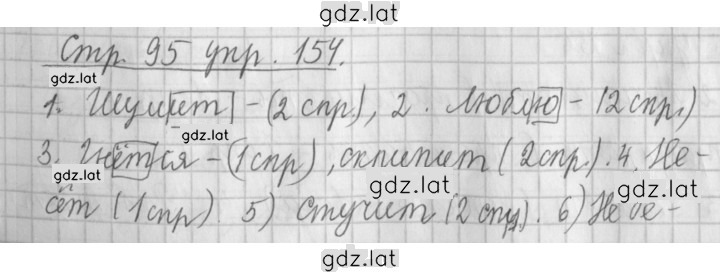 gdz.lat
Стр. 95 упр. 154.
gdz.lat
1. Шумит - (2 спр.), 2. Люблю - (2 спр.)
gdz.lat
3. Гнётся - (1 спр.), скрипит (2 спр.). 4. Не-
gdz.lat gdz.lat
сёт (1 спр.). 5) стучит (2 спр.). 6)
gdz.lat